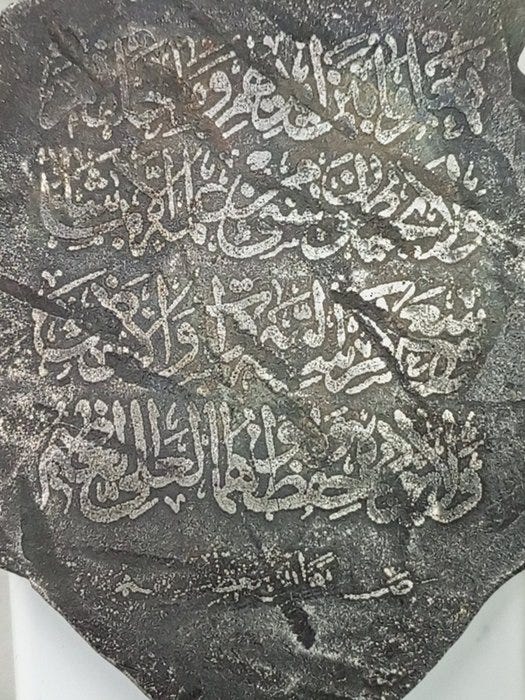 يعلم ما بين ايديهم وما خلفهم
ولا يحيطون بشيء من علمه الا بما شاء
وسع كرسيه السموات والارض
ولا يؤده حفظهما وهو العلي العظيم